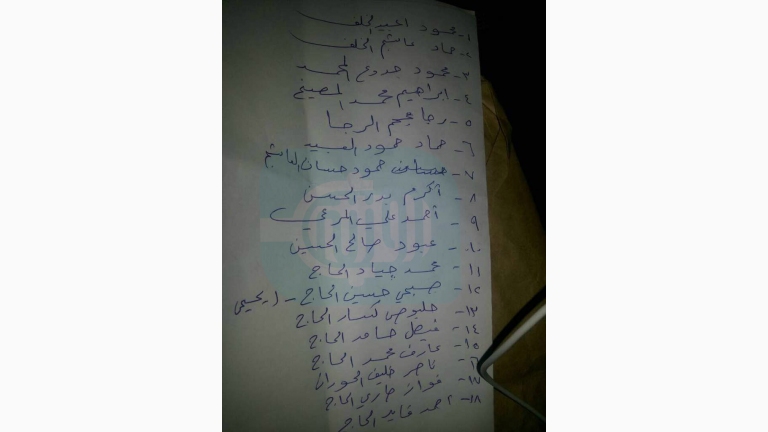 ١- محمود اعبيد الخلف
٢- حماد عاشج الخلف
٣- محمود جدوع المحمد
٤- ابراهيم محمد المصينع
٥- رجا عجم الرجا
٦- حماد حمود العبيد
٧- حمود حسان العاشج
٨- أكرم بدر الحسن
٩- أحمد علي المرعي
١٠- عبود صالح الحسين
١١- محمد جياد الحاج
١٢- صبحي حسين الحاج -
١٣- حلبوص كسار الحاج
١٤- فيصل حامد الحاج
١٥- عارف محمد الحاج
١٦- ناصر خليف الحوران
١٧- فواز الحاج
١٨- احمد فايد الحاج